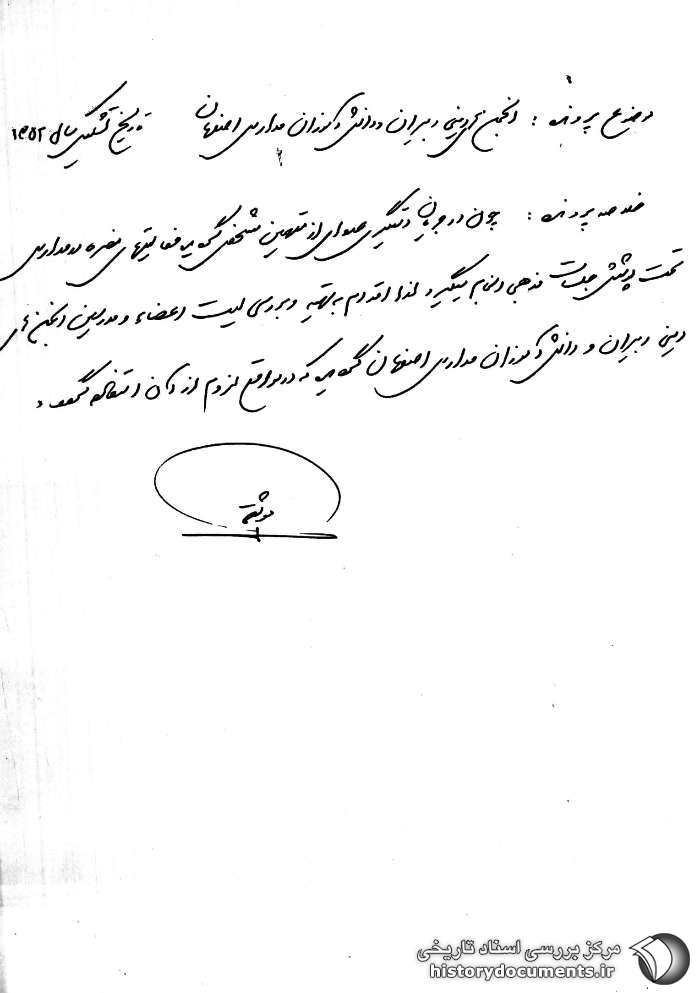 موضوع پرونده : انجمن های دینی دبیران و دانش آموزان مدارس اصفهان تاریخ تشکیل سال ۱۳۵۲
خلاصه پرونده : چون در جریان دستگیری عده‌ای از متهمین مشخص گردید فعالیتهای مضره در مدارس
تحت پوشش جلسات مذهبی انجام میگیرد لذا اقدام به تهیه و بررسی لیست اعضاء و مدرسین انجمن های
دینی دبیران و دانش آموزان مدارس اصفهان گردید که در مواقع لزوم از آن استفاده گردد .
مرکز بررسی اسناد تاریخی
historydocuments.ir